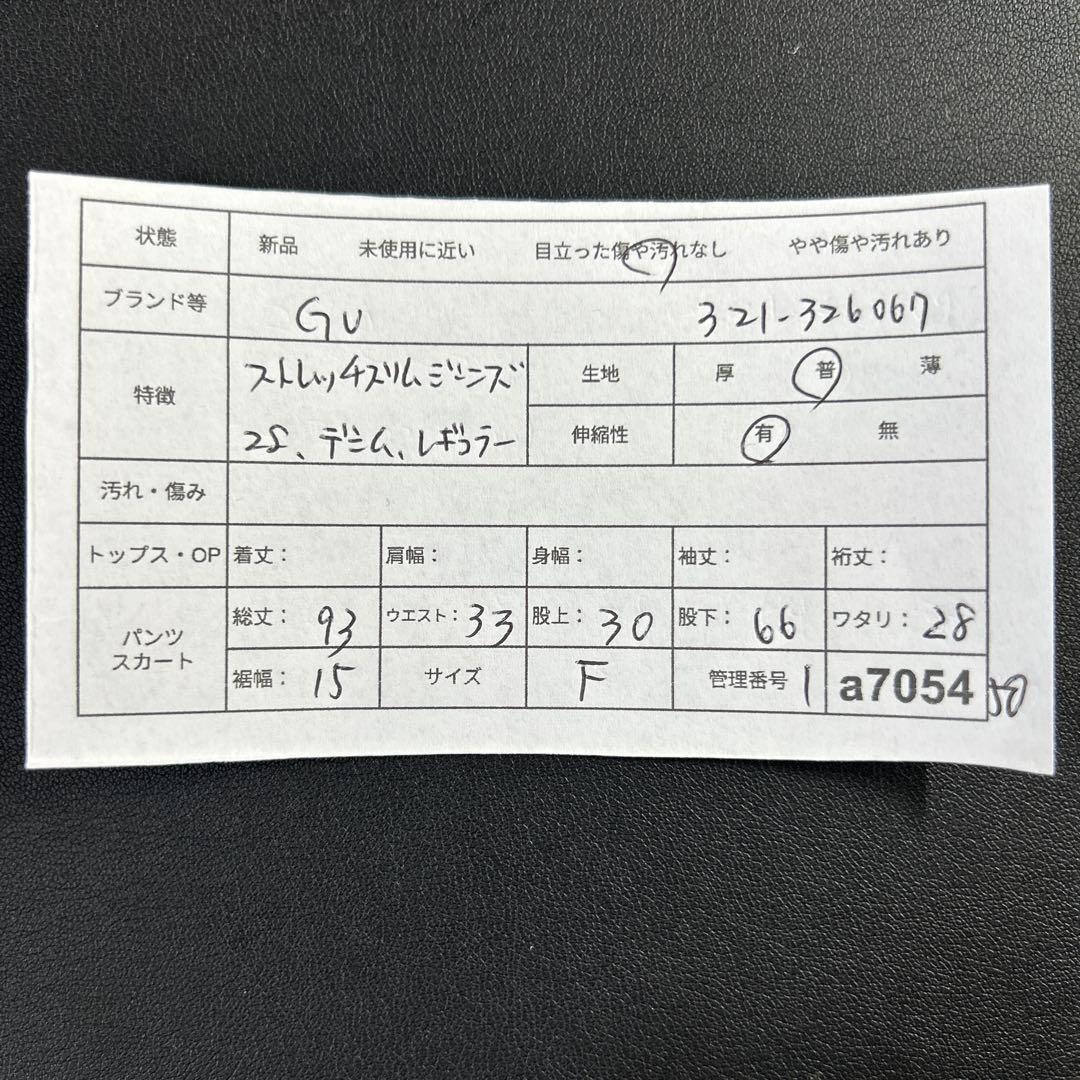 状態 新品 未使用に近い 目立った傷や汚れなし やや傷や汚れあり
ブランド等 GU 321-326067
特徴 ストレッチスリムジーンズ 生地 厚 普 薄
28、デニム、レギュラー 伸縮性 有 無
汚れ・傷み
トップス・OP 着丈: 肩幅: 身幅: 袖丈: 裄丈:
パンツ スカート 総丈: 93 ウエスト: 33 股上: 30 股下: 66 ワタリ: 28
裾幅: 15 サイズ F 管理番号 1 a7054 50